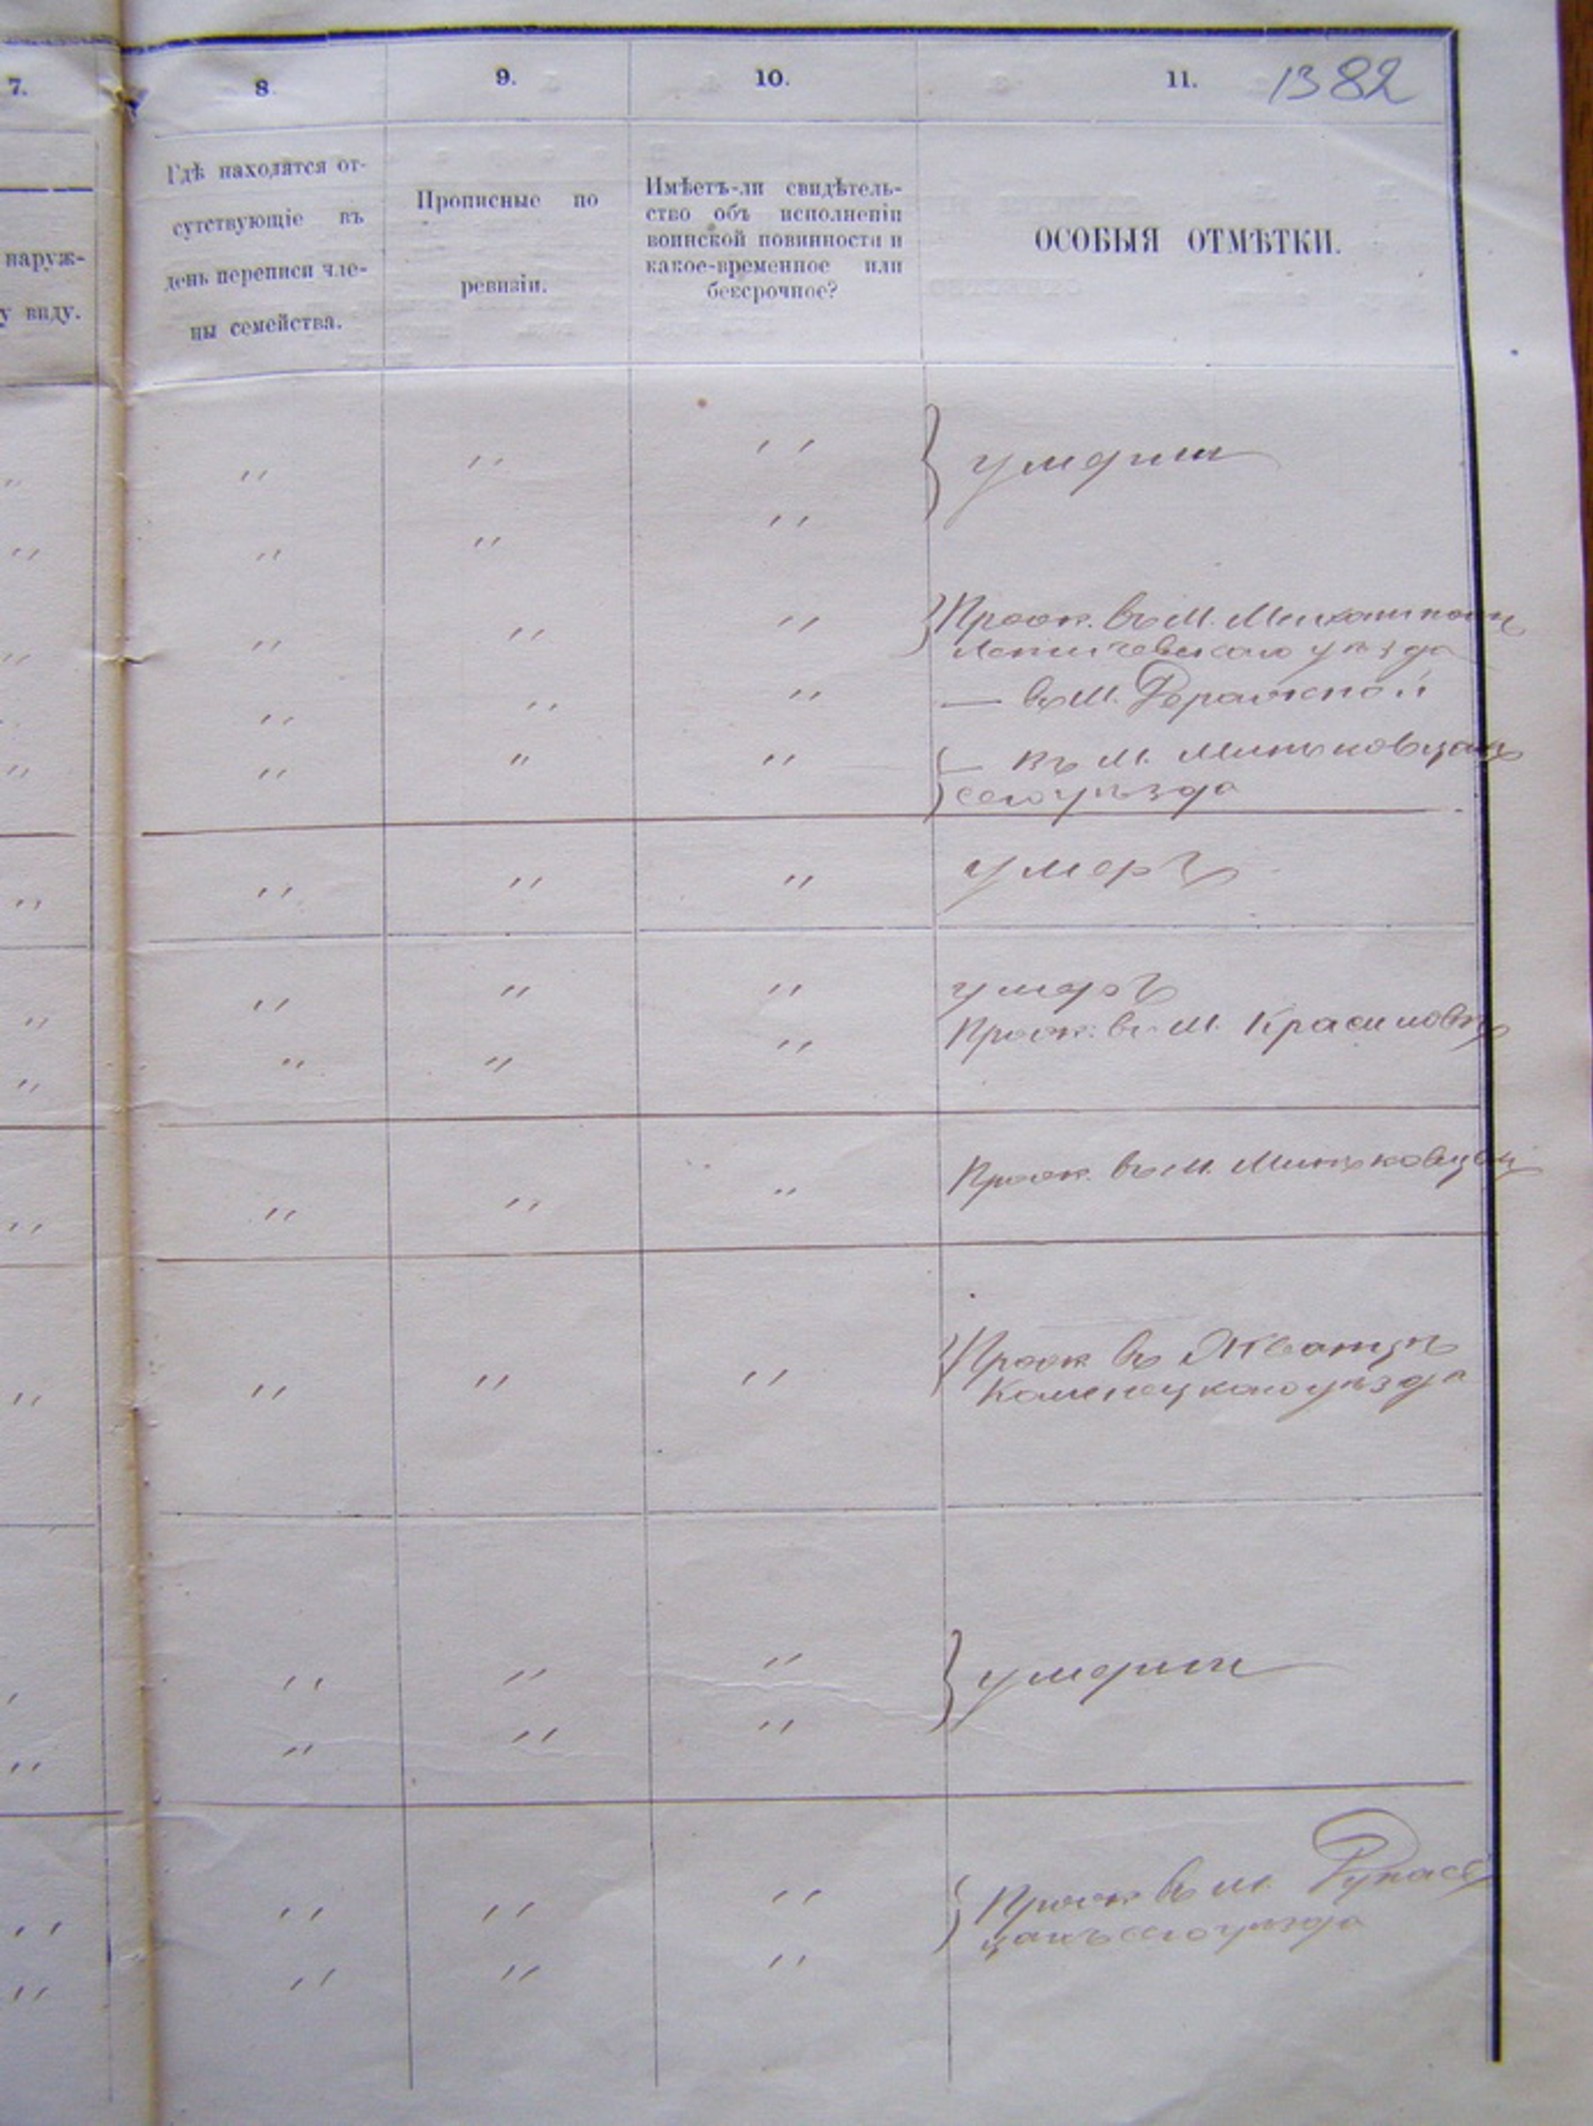 7.
8
9.
10.
11.
1382
наруж-
у виду.
Гдѣ находятся от-
сутствующіе въ
день переписи чле-
ны семейства.
Прописные по
ревизіи.
Имѣетъ-ли свидѣтель-
ство объ исполненіи
воинской повинности и
какое-временное или
безсрочное?
ОСОБЫЯ ОТМѢТКИ.
" " " " умерли
" " " "
" " " " Прож. въ м. Михалполѣ
Летичевскаго уѣзда
" " " — въ м. Деражной
" " " " — въ м. Миньковцахъ
сего уѣзда
" " " " умеръ
" " " " умеръ
" " " " Прож. въ м. Красиловѣ
" " " " Прож. въ м. Миньковцахъ
" " " " Прож въ Жванцѣ
Каменецкаго уѣзда
" " " умерли
" " " "
" " " " Прож въ м.
цахъ сего уѣзда
" " " "